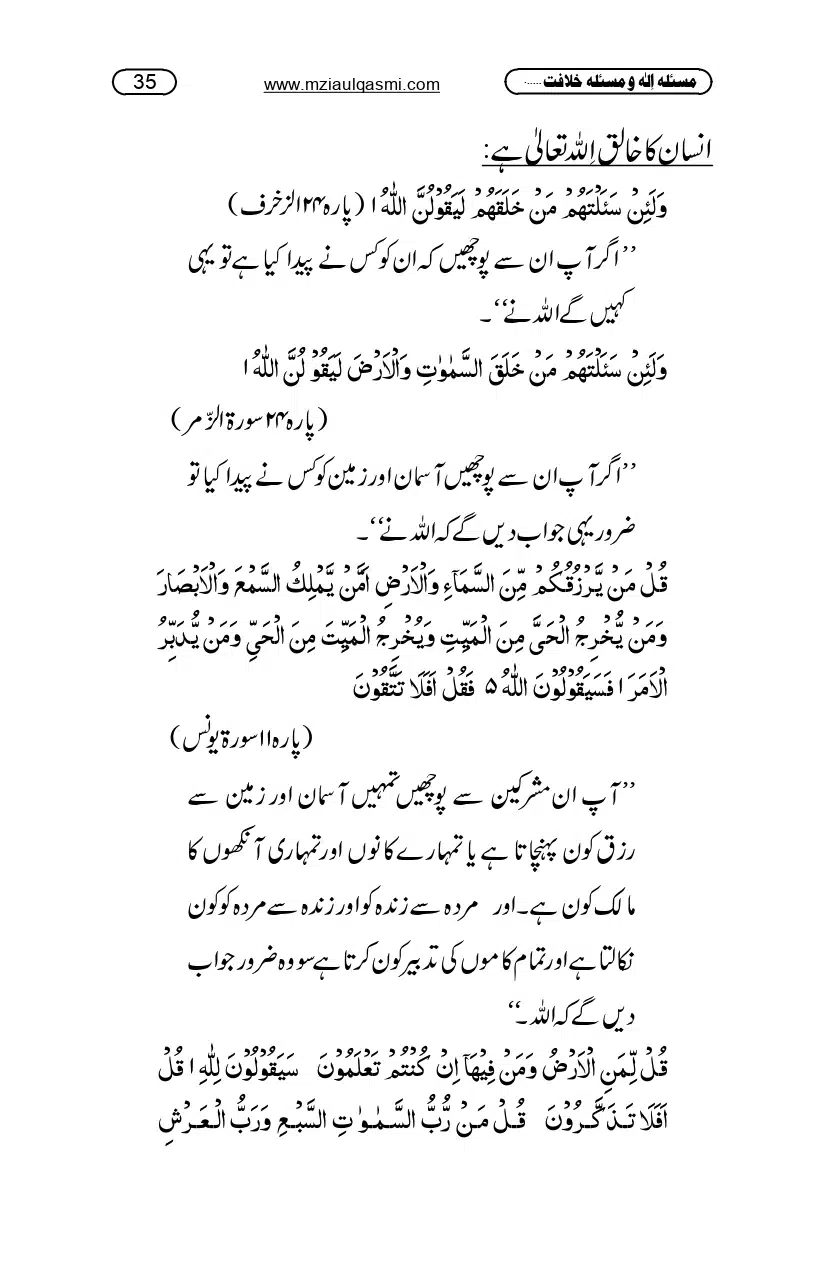 مسئلہ اِلٰہ و مسئلہ خلافت...... www.mziaulqasmi.com 35
انسان کا خالق اللہ تعالیٰ ہے:
وَلَئِنْ سَئَلْتَهُمْ مَنْ خَلَقَهُمْ لَيَقُوْلُنَّ اللّٰهُ ا (پارہ ۲۴ الزخرف)
’’اگر آپ ان سے پوچھیں کہ ان کو کس نے پیدا کیا ہے تو یہی
کہیں گے اللہ نے‘‘۔
وَلَئِنْ سَئَلْتَهُمْ مَنْ خَلَقَ السَّمٰوٰتِ وَالْاَرْضَ لَيَقُوْ لُنَّ اللّٰهُ ا
(پارہ ۲۴ سورۃ الزّمر)
’’اگر آپ ان سے پوچھیں آسمان اور زمین کو کس نے پیدا کیا تو
ضرور یہی جواب دیں گے کہ اللہ نے‘‘۔
قُلْ مَنْ يَّرْزُقُكُمْ مِّنَ السَّمَآءِ وَالْاَرْضِ اَمَّنْ يَّمْلِكُ السَّمْعَ وَالْاَبْصَارَ
وَمَنْ يُّخْرِجُ الْحَيَّ مِنَ الْمَيِّتِ وَيُخْرِجُ الْمَيِّتَ مِنَ الْحَيِّ وَمَنْ يُّدَبِّرُ
الْاَمْرَ ا فَسَيَقُوْلُوْنَ اللّٰهُ ۵ فَقُلْ اَفَلَا تَتَّقُوْنَ
(پارہ ۱۱ سورۃ یونس)
’’آپ ان مشرکین سے پوچھیں تمہیں آسمان اور زمین سے
رزق کون پہنچاتا ہے یا تمہارے کانوں اور تمہاری آنکھوں کا
مالک کون ہے۔ اور مردہ سے زندہ کو اور زندہ سے مردہ کو کون
نکالتا ہے اور تمام کاموں کی تدبیر کون کرتا ہے سو وہ ضرور جواب
دیں گے کہ اللہ۔‘‘
قُلْ لِّمَنِ الْاَرْضُ وَمَنْ فِيْهَآ اِنْ كُنْتُمْ تَعْلَمُوْنَ سَيَقُوْلُوْنَ لِلّٰهِ ا قُلْ
اَفَلَا تَذَكَّرُوْنَ قُلْ مَنْ رُّبُّ السَّمٰوٰتِ السَّبْعِ وَرَبُّ الْعَرْشِ